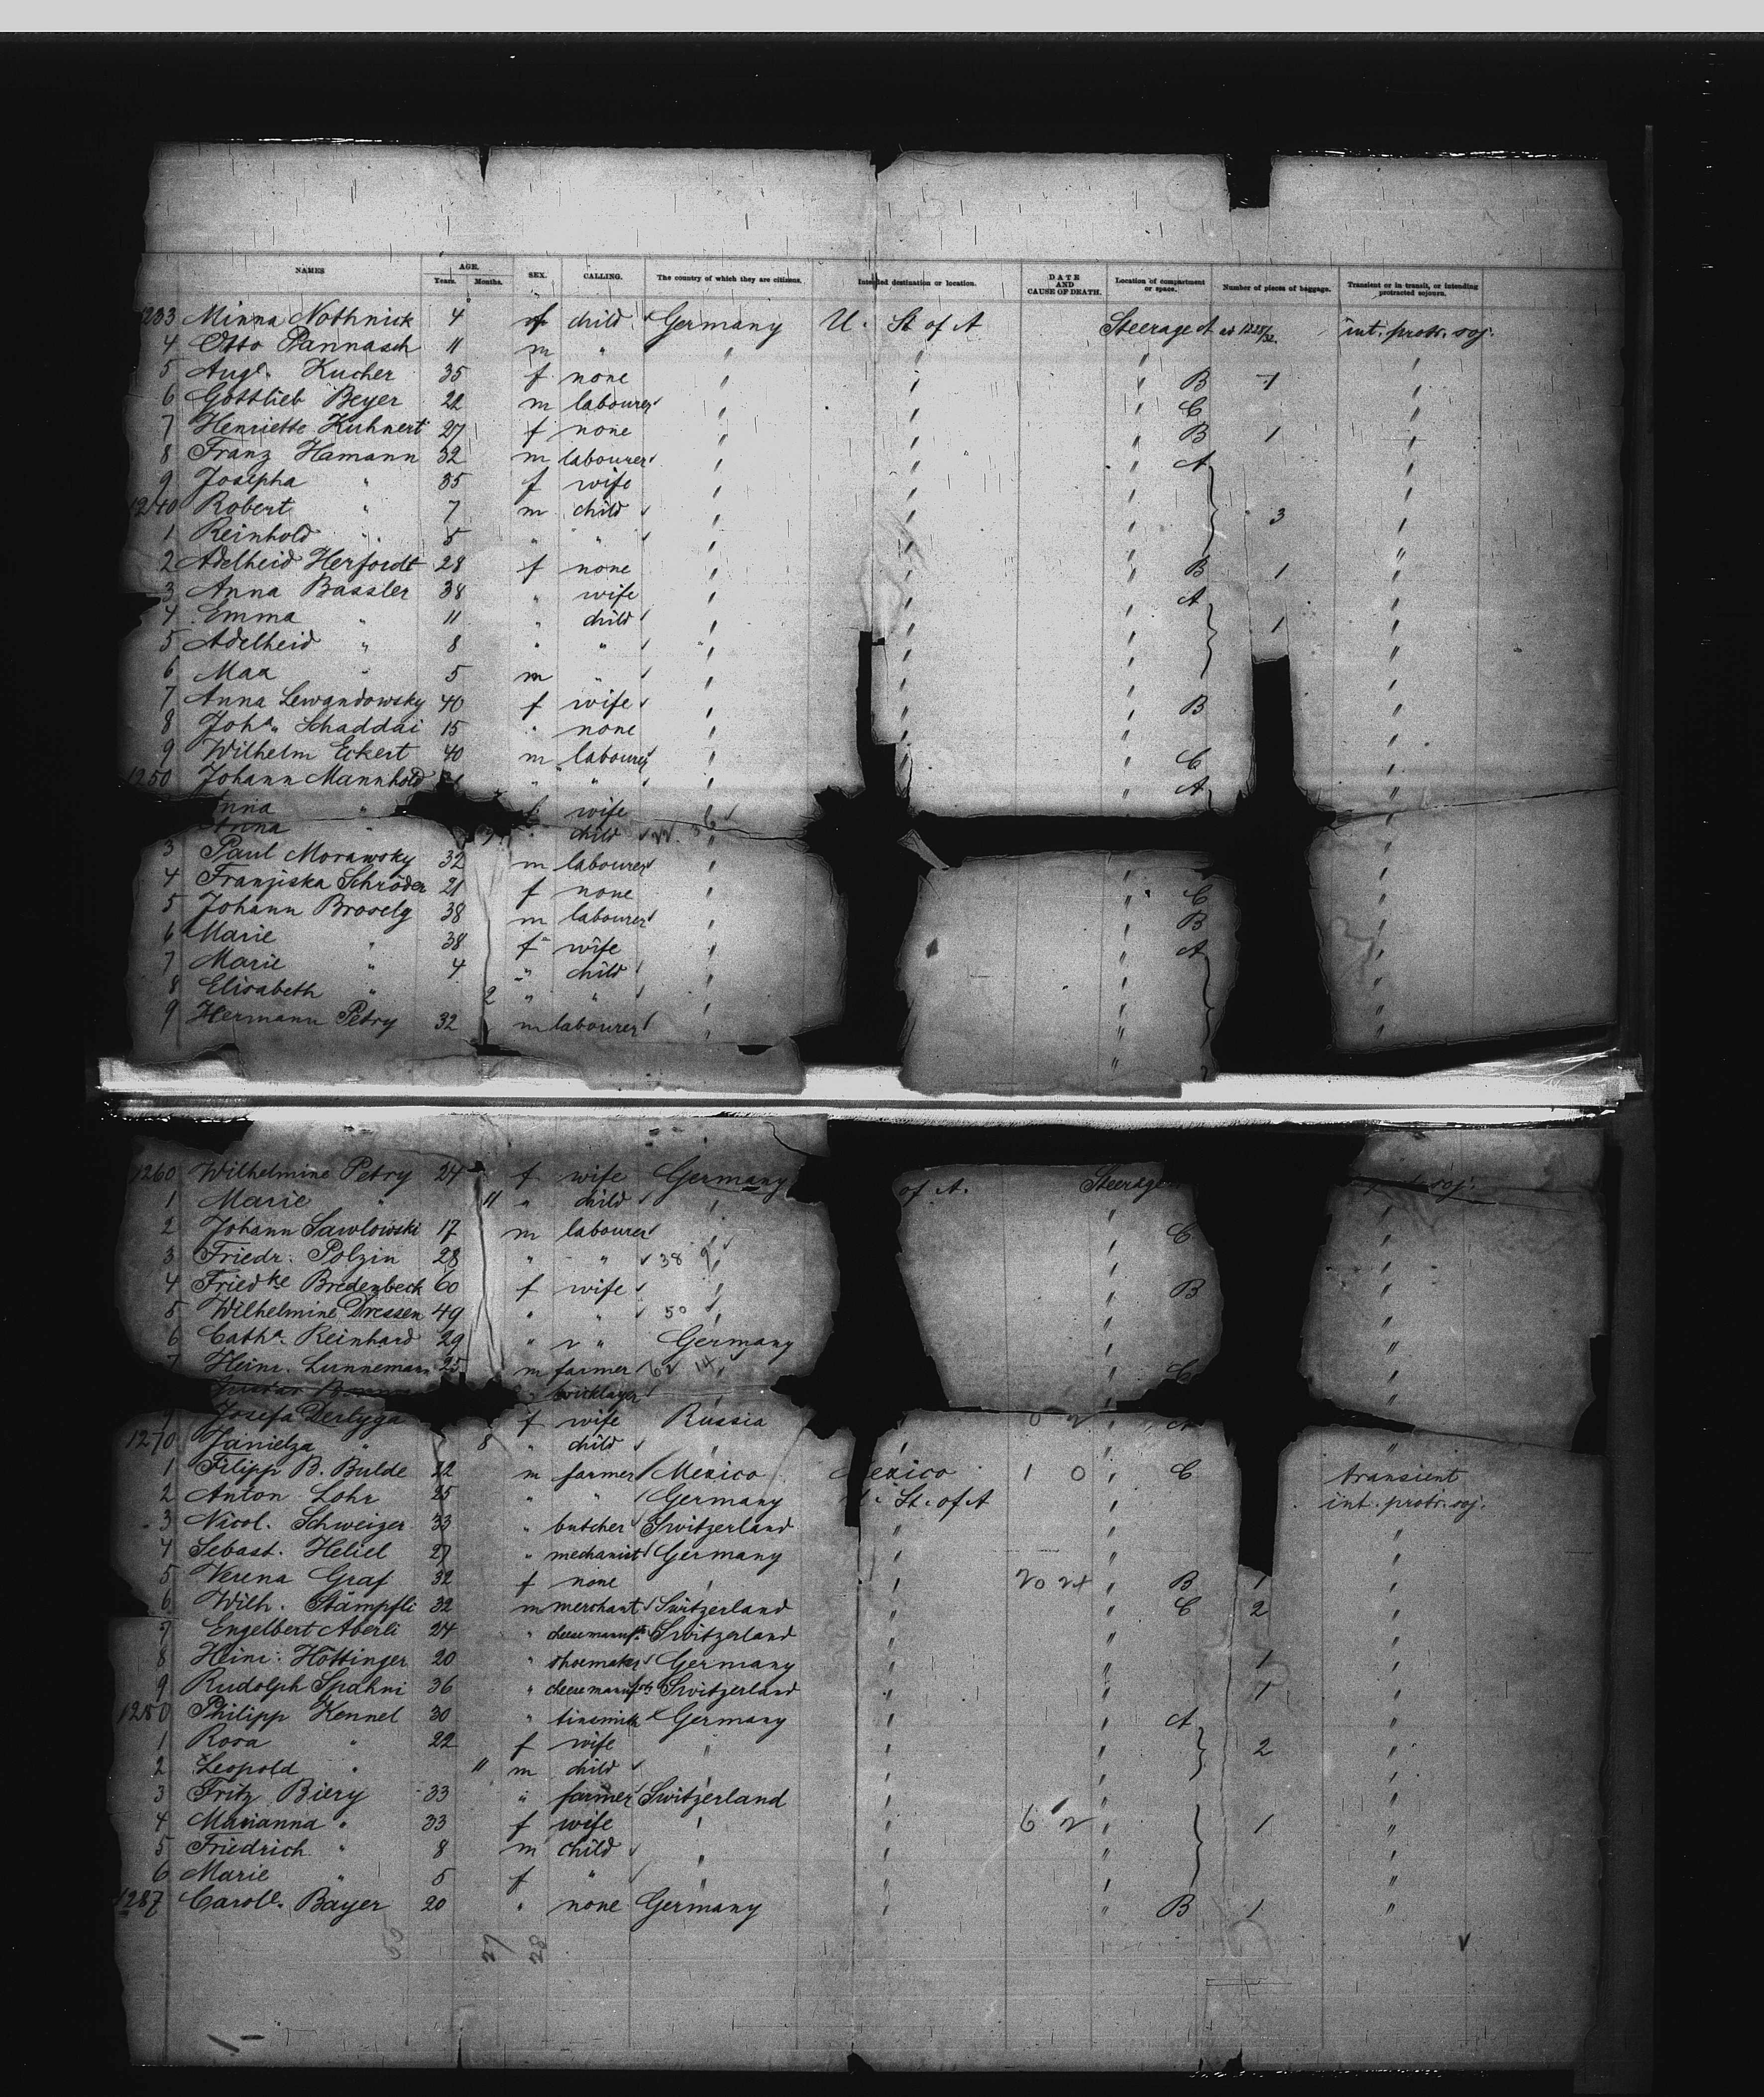 NAMES AGE. Years. Months. SEX. CALLING. The country of which they are citizens. Intended destination or location. DATE AND CAUSE OF DEATH. Location of compartment or space. Number of pieces of baggage. Transient or in transit, or intending protracted sojourn.
1233 Minna Nothnick 4 f child Germany U. St of A Steerage A as 1228/32. int. protr. soj.
4 Otto Pannasch 11 m " " " " "
5 Augte. Kucher 35 f none " " " B 1 "
6 Gottlieb Beyer 22 m labourer " " " C "
7 Henriette Kuhnert 27 f none " " " B 1 "
8 Franz Hamann 32 m labourer " " " A "
9 Josepha " 35 f wife " " " "
1240 Robert " 7 m child " " " 3 "
1 Reinhold " 5 " " " " " "
2 Adelheid Herfordt 28 f none " " " B 1 "
3 Anna Bassler 38 " wife " " " A "
4 Emma " 11 " child " " " 1 "
5 Adelheid " 8 " " " " " "
6 Max " 5 m " " " " "
7 Anna Lewandowsky 40 f wife " " " B "
8 Joha. Schaddai 15 " none " " " "
9 Wilhelm Eckert 40 m labourer " " " C "
1250 Johann Mannhold " " " " A "
Anna " f wife "
Anna " child "
3 Paul Morawsky 32 m labourer " "
4 Franziska Schröder 21 f none " " C "
5 Johann Broselg 38 m labourer " " B "
6 Marie " 38 f wife " " A "
7 Marie " 4 " child " " "
8 Elisabeth " 2 " " " " "
9 Hermann Petry 32 m labourer " " "
1260 Wilhelmine Petry 24 f wife Germany of A. Steerage soj.
1 Marie " 11 " child " " "
2 Johann Sawlowski 17 m labourer " " C "
3 Friedr. Polzin 28 " " 38 9 " "
4 Friedke Bredenbeck 60 f wife " " B "
5 Wilhelmine Dressen 49 " " 50 " "
6 Catha. Reinhard 29 " " Germany " "
7 Heinr. Lunnemann 25 m farmer " " C "
bricklayer
9 Josefa Derlyga f wife Russia " " A
1270 Janielza " 8 " child " " " "
1 Filipp B. Bulde 22 m farmer Mexico Mexico 1 0 " C transient
2 Anton Lohr 25 " " Germany St. of A " int. protr. soj.
3 Nicol. Schweizer 33 " butcher Switzerland " " "
4 Sebast. Heliel 27 " mechanist Germany " " "
5 Verena Graf 32 f none " " " B 1 "
6 Wilh. Stämpfli 32 m merchant Switzerland " " C 2 "
7 Engelbert Aberli 24 " Switzerland " " "
8 Heinr. Höttinger 20 " shoemaker Germany " " 1 "
9 Rudolph Spahni 36 " Switzerland " " 1 "
1280 Philipp Kennel 30 " tinsmith Germany " " A "
1 Rosa " 22 f wife " " " 2 "
2 Leopold " 11 m child " " " "
3 Fritz Biery 33 " farmer Switzerland " " "
4 Marianna " 33 f wife " " 6 2 " 1 "
5 Friedrich " 8 m child " " " "
6 Marie " 5 f " " " " "
1287 Carole. Bayer 20 " none Germany " " B 1 "
55 27 28